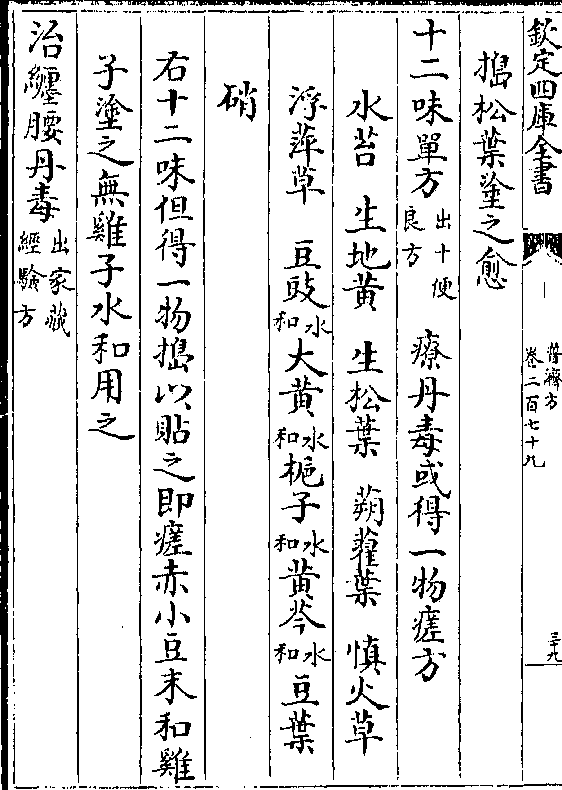 欽定四庫全書
普濟方
卷二百七十九
三十九
搗松葉塗之愈
十二味單方出十便良方 療丹毒或得一物瘥方
水苔 生地黄 生松葉 蒴藋葉 慎火草
浮萍草 豆豉水和大黄水和梔子水和黄芩水和豆葉
硝
右十二味但得一物搗以貼之即瘥赤小豆末和雞
子塗之無雞子水和用之
治纏腰丹毒出家藏經驗方